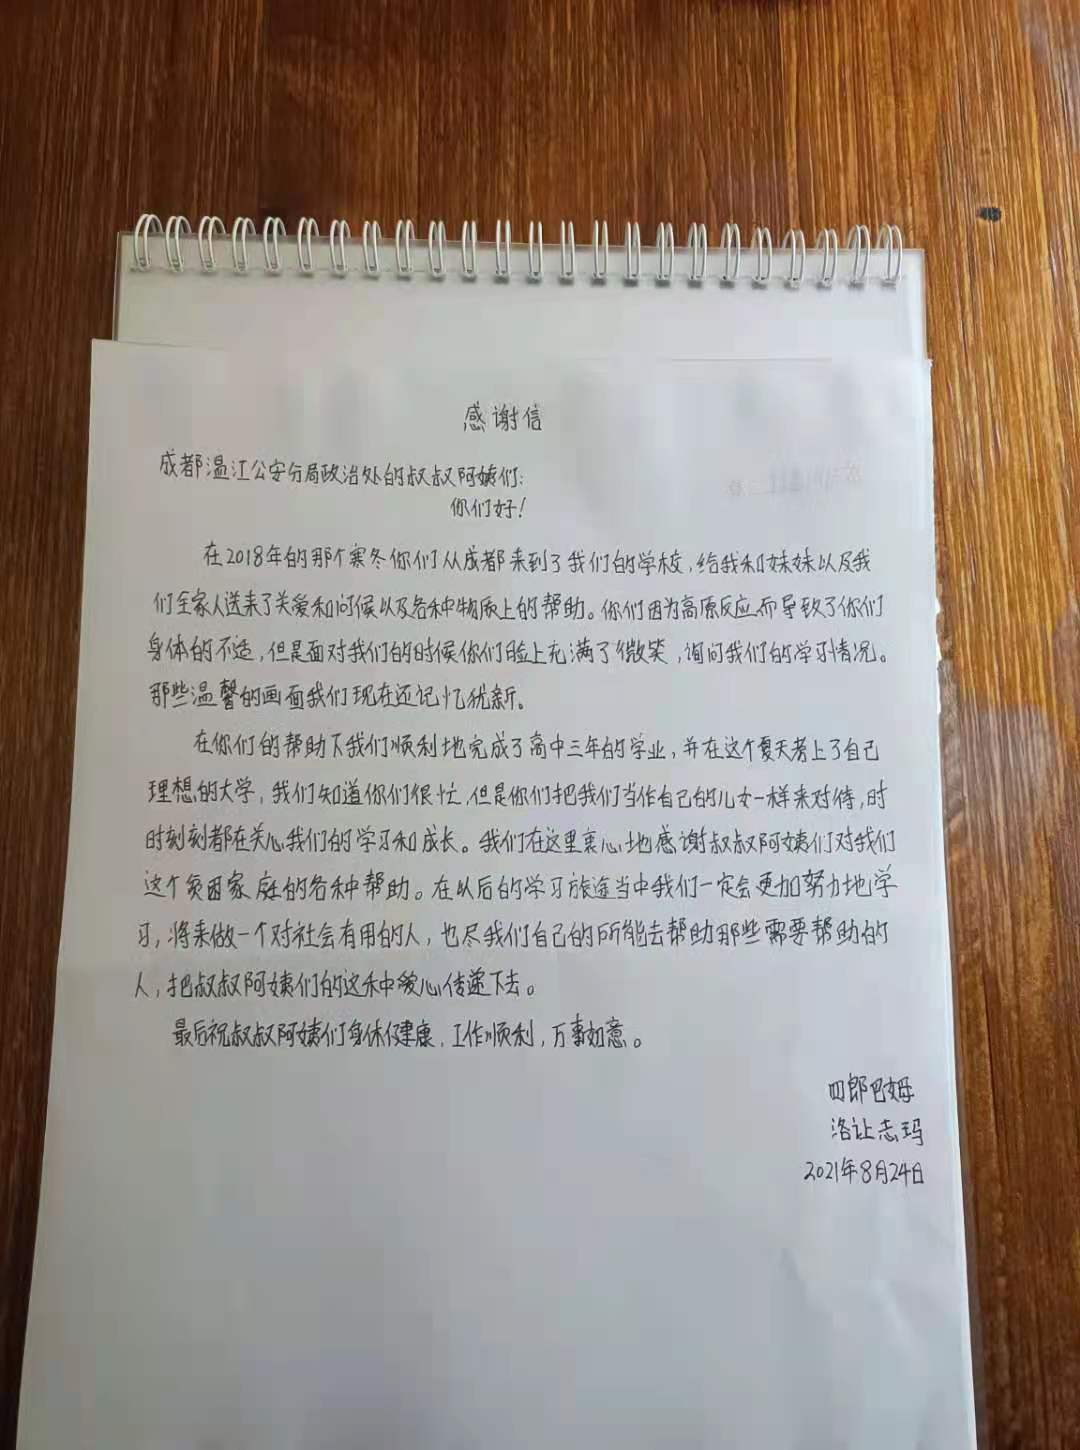 感谢信
成都温江公安分局政治处的叔叔阿姨们:
你们好!
在2018年的那个寒冬你们从成都来到了我们的学校,给我和妹妹以及我
们全家人送来了关爱和问候以及各种物质上的帮助。你们因为高原反应而导致了你们
身体的不适,但是面对我们的时候你们脸上充满了微笑,询问我们的学习情况。
那些温馨的画面我们现在还记忆犹新。
在你们的帮助下我们顺利地完成了高中三年的学业,并在这个夏天考上了自己
理想的大学,我们知道你们很忙,但是你们把我们当作自己的儿女一样来对待,时
时刻刻都在关心我们的学习和成长。我们在这里衷心地感谢叔叔阿姨们对我们
这个贫困家庭的各种帮助。在以后的学习旅途当中我们一定会更加努力地学
习,将来做一个对社会有用的人,也尽我们自己的所能去帮助那些需要帮助的
人,把叔叔阿姨们的这种爱心传递下去。
最后祝叔叔阿姨们身体健康,工作顺利,万事如意。
四郎巴姆
洛让志玛
2021年8月24日